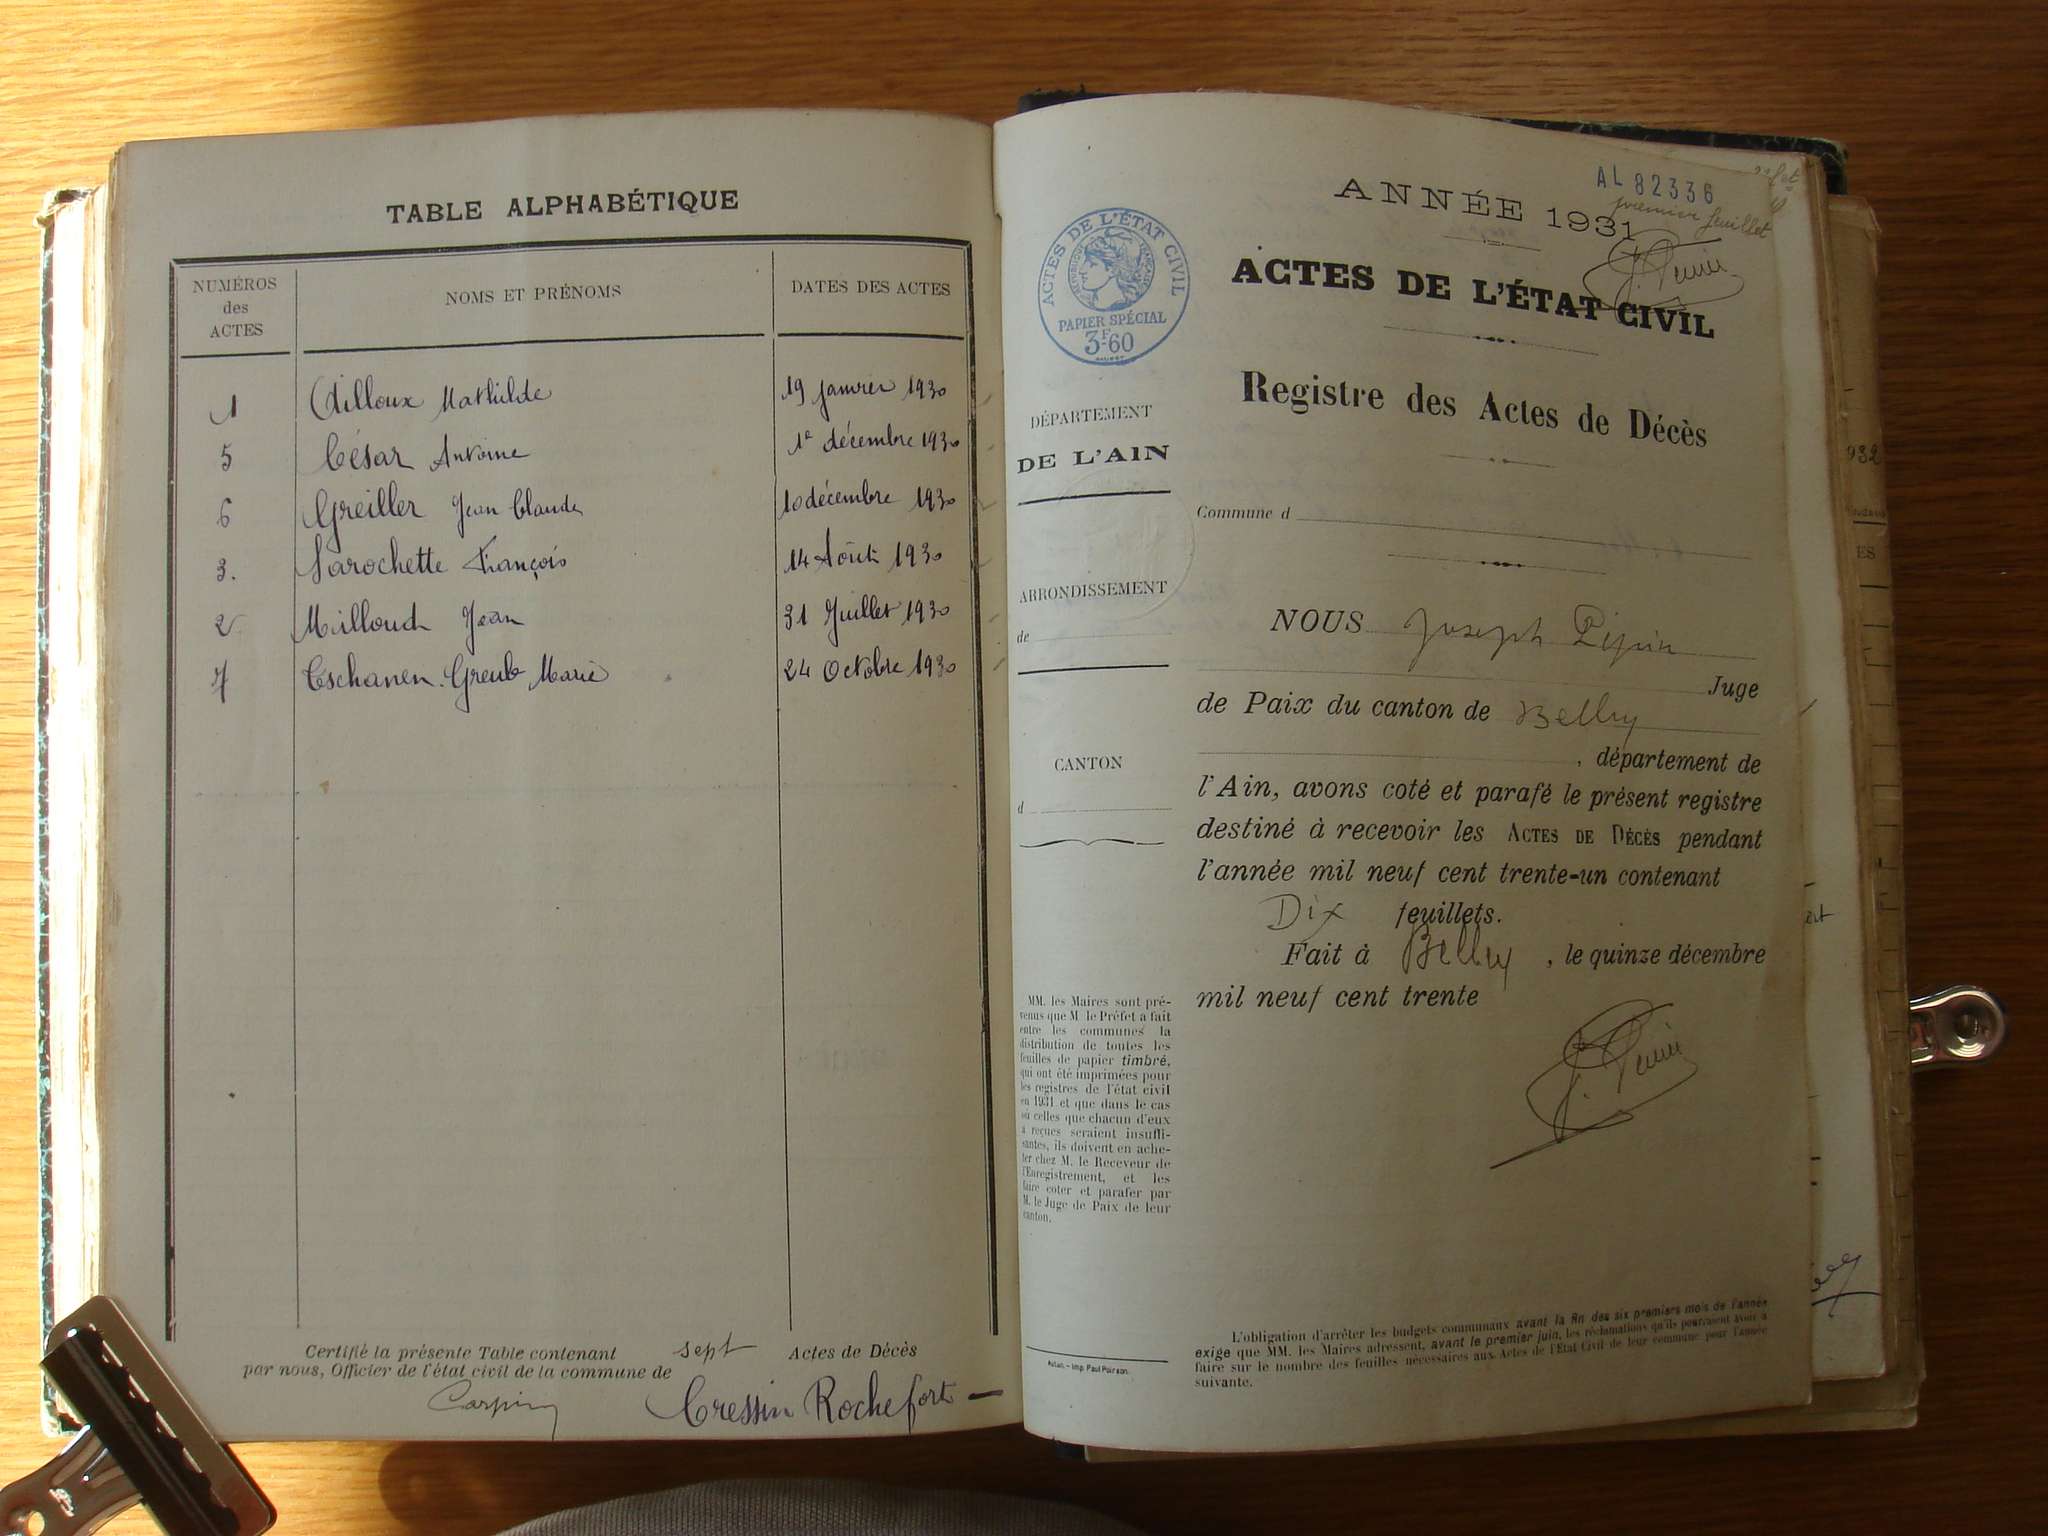 TABLE ALPHABÉTIQUE
NUMÉROS
des
ACTES
NOMS ET PRÉNOMS
DATES DES ACTES
1 Ailloux Mathilde 19 janvier 1930
5 César Antoine 1e décembre 1930
6 Greiller Jean Claude 10 décembre 1930
3. Larochette François 14 Août 1930
2 Milloud Jean 31 Juillet 1930
7 Tschanen Greub Marie 24 Octobre 1930
Certifié la présente Table contenant sept Actes de Décès
par nous, Officier de l'état civil de la commune de
Cressin Rochefort
AL 82336
premier feuillet
ANNÉE 1931
ACTES DE L'ÉTAT CIVIL
RÉPUBLIQUE FRANÇAISE
PAPIER SPÉCIAL
3F60
ACTES DE L'ÉTAT CIVIL
Registre des Actes de Décès
DÉPARTEMENT
DE L'AIN
Commune d
ARRONDISSEMENT
de
CANTON
d
NOUS Joseph Pépin
Juge
de Paix du canton de Belley
, département de
l'Ain, avons coté et parafé le présent registre
destiné à recevoir les ACTES DE DÉCÈS pendant
l'année mil neuf cent trente-un contenant
Dix feuillets.
Fait à Belley, le quinze décembre
mil neuf cent trente
MM. les Maires sont pré-
venus que M le Préfet a fait
entre les communes la
distribution de toutes les
feuilles de papier timbré,
qui ont été imprimées pour
les registres de l'état civil
en 1931 et que dans le cas
où celles que chacun d'eux
a reçues seraient insuffi-
santes, ils doivent en ache-
ter chez M. le Receveur de
l'Enregistrement, et les
faire coter et parafer par
M. le Juge de Paix de leur
canton.
L'obligation d'arrêter les budgets communaux avant la fin des six premiers mois de l'année
exige que MM. les Maires adressent, avant le premier juin, les réclamations qu'ils pourraient avoir à
faire sur le nombre des feuilles nécessaires aux Actes de l'État Civil de leur commune pour l'année
suivante.
Imp. Paul Poirson.
932
ES